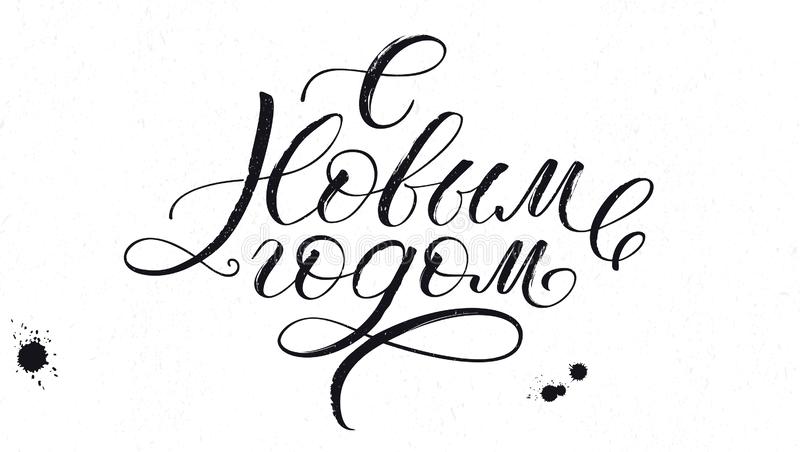 С
Новым
годом